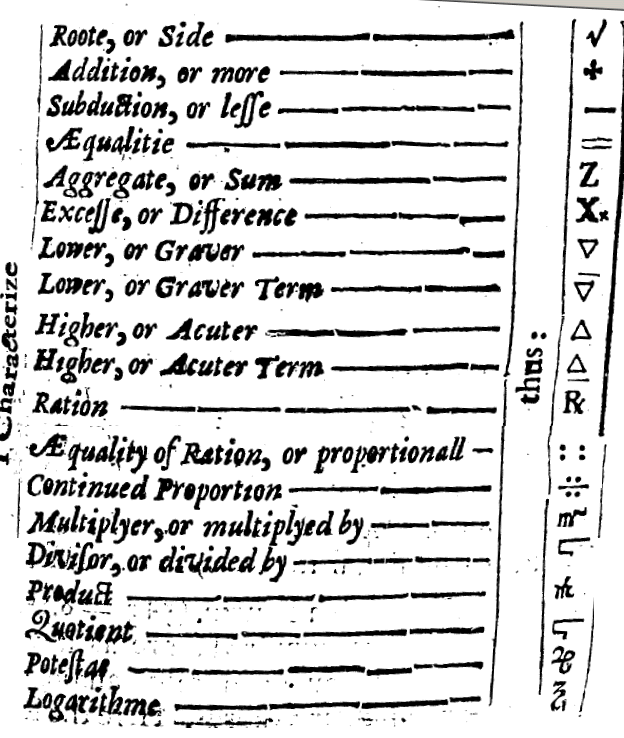 Roote, or Side √
Addition, or more +
Subduction, or leſſe —
Æqualitie =
Aggregate, or Sum Z
Exceſſe, or Difference X
Lower, or Graver ▽
Lower, or Graver Term ▽̅
Higher, or Acuter △
Higher, or Acuter Term △̲
Ration ℞
Æquality of Ration, or proportionall : :
Continued Proportion
Multiplyer, or multiplyed by
Diviſor, or divided by
Product
Quotient
Poteſtas
Logarithme
Characterize
thus: